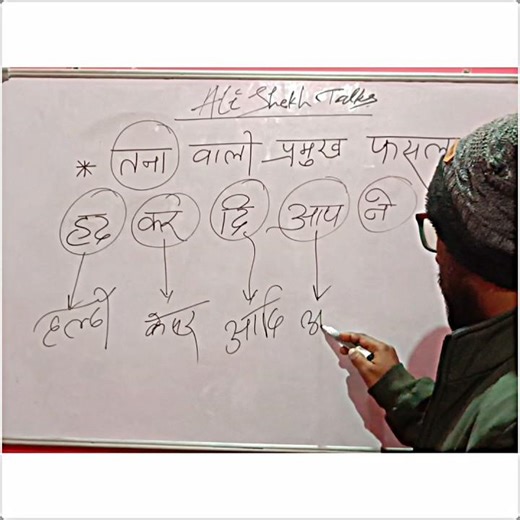 Ali Shekh Talks
* तना वाली प्रमुख फसल
हद कर दि आप ने
हल्दी केसर आदि अ